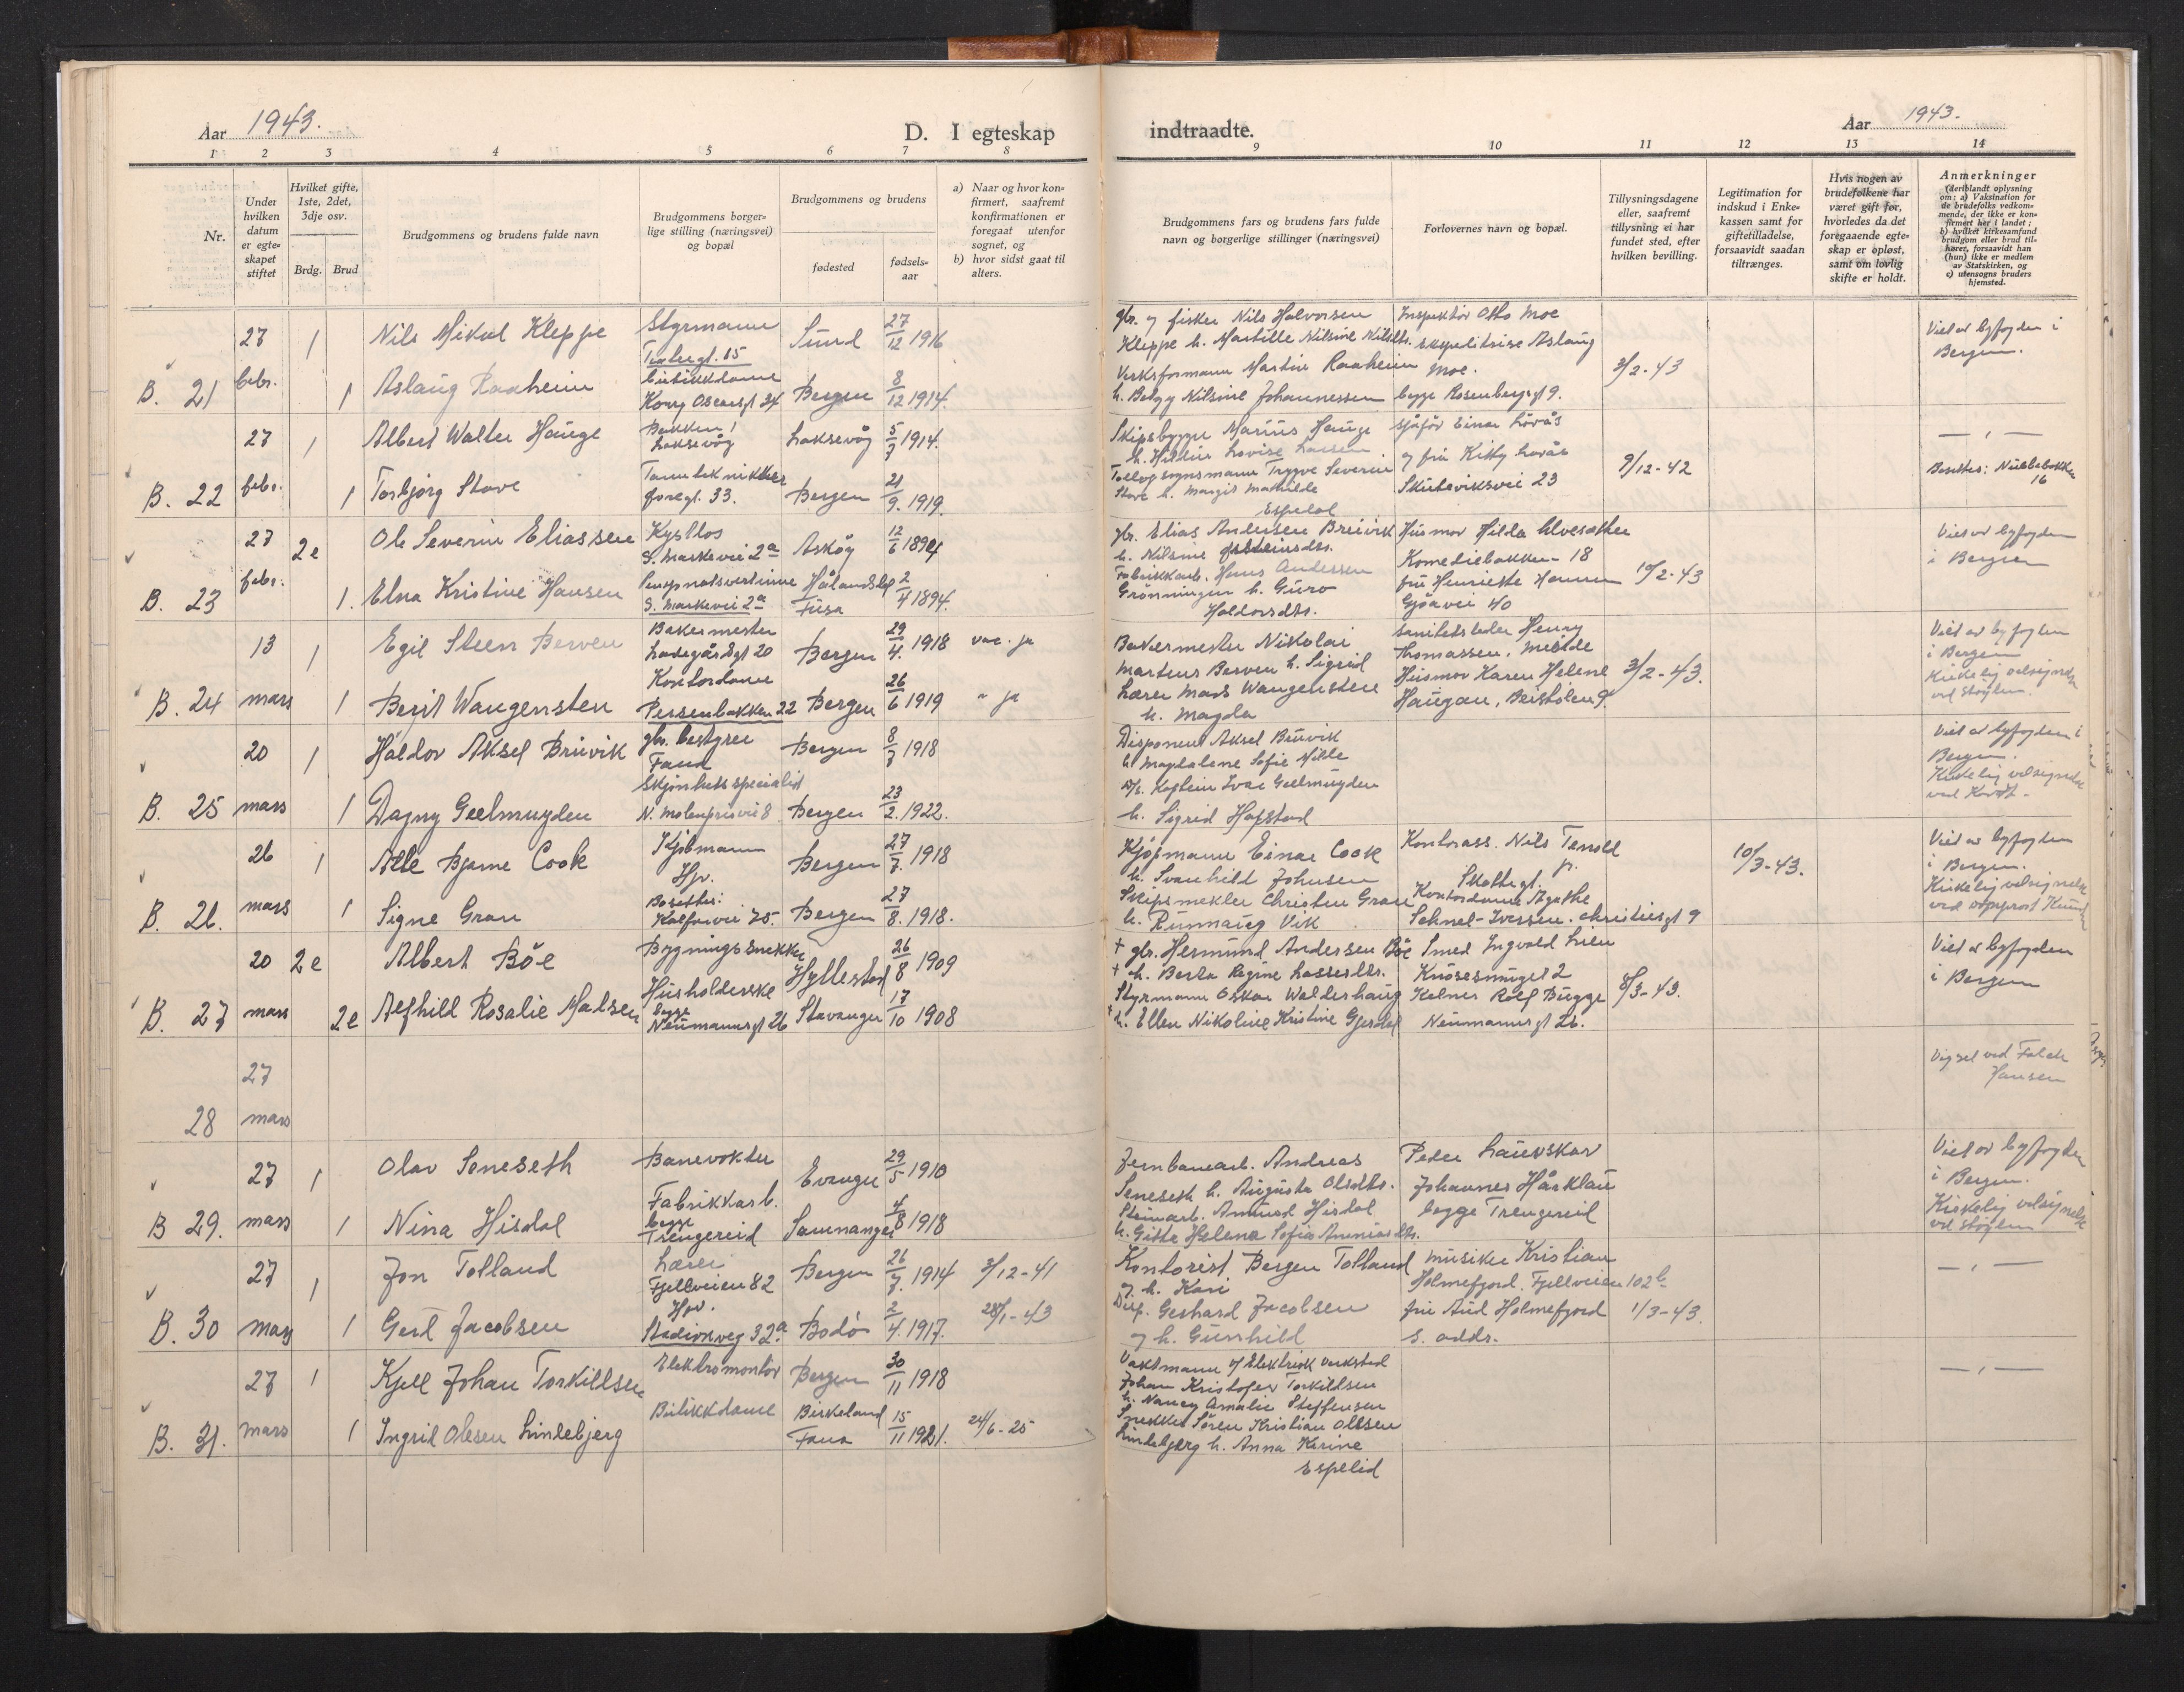 Aar 1943.
D. I egteskap indtraadte.
Aar 1943.
1 2 3 4 5 6 7 8 9 10 11 12 13 14
Nr.
Under hvilken datum er egteskapet stiftet
Hvilket gifte, 1ste, 2det, 3dje osv.
Brdg. Brud
Brudgommens og brudens fulde navn
Brudgommens borgerlige stilling (næringsvei) og bopæl
Brudgommens og brudens
fødested
fødselsaar
a) Naar og hvor konfirmert, saafremt konfirmationen er foregaat utenfor sognet, og
b) hvor sidst gaat til alters.
Brudgommens fars og brudens fars fulde navn og borgerlige stillinger (næringsvei)
Forlovernes navn og bopæl.
Tillysningsdagene eller, saafremt tillysning ei har fundet sted, efter hvilken bevilling.
Legitimation for indskud i Enkekassen samt for giftetilladelse, forsaavidt saadan tiltrænges.
Hvis nogen av brudefolkene har været gift før, hvorledes da det foregaaende egteskap er opløst, samt om lovlig skifte er holdt.
Anmerkninger
(deriblandt oplysning om: a) Vaksination for de brudefolks vedkommende, der ikke er konfirmert her i landet; b) hvilket kirkesamfund brudgom eller brud tilhører, forsaavidt han (hun) ikke er medlem av Statskirken, og c) utensogns bruders hjemsted.
B. 21
27 febr.
1
Nils Mikal Kleppe
Styrmann
Sund
27/12 1916
1
Aslaug Raaheim
Butikkdame
Kong Oscarsgt 34
Bergen
8/12 1914.
gbr. og fisker Nils Halvorsen
Kleppe h. Martille Nilsine Nilsdts.
Verksformann Martin Raaheim
h. Borgny Nilsine Johannessen
Inspektør Otto Moe
Ekspeditrise Aslaug
Moe.
begge Rosenbergsgt 9.
3/2-43
Viet av byfogden i
Bergen.
B. 22
27 febr.
1
Albert Walter Hauge
Bakken 1
Laksevåg
Laksevåg
5/7 1914.
1
Torbjørg Stave
Tanntekniker
33.
Bergen
21/9. 1919.
Skipsbygger Marius Hauge
Lovise Larsen
Trygve Severin
Stave h. Margit Mathilde
Espelal
sjåfør Einar Lövås
og fru Kitty Lövås
Skuteviksvei 23
9/12-42
— „ —
Bosettes: Nubbebakken
16
B. 23
27 febr.
2e
Ole Severin Eliassen
Kystlos
S. Markevei 2a
Askøy
12/6 1894
1.
Elna Kristine Hansen
Pensjonatsvertinne
S. Markevei 2a
Hålandsdal
Fusa
2/4 1894.
gbr. Elias Andersen Breivik
h. Nilsine
Fabrikkarb. Hans Andersen
Grønningen h. Guro
Haldorsdts.
Husmor Hilda Alvesæther
Komediebakken 18
fru Henriette Hansen
Gjøavei 40
10/2-43
Viet av byfogden
i Bergen
B. 24
13 mars
1
Egil Steen Berven
Bakermester
Ladegårdsgt 20
Bergen
29/4. 1918
vac. ja
1
Berit Wangensten
Kontordame
Persenbakken 22
Bergen
26/6 1919
" ja
Bakermester Nikolai
Martens Berven h. Sigrid
Lærer Mads Wangensten
h. Magda
Sanitetsleder Henry
Thomassen, Milde
Husmor Karen Helene
Haugan,
3/2-43.
Viet av byfogden
i Bergen
Kirkelig velsignelse
ved Støylen.
B. 25
20 mars
1
Haldor Aksel Bruvik
gbr. bestyrer
Fana
Bergen
8/7 1918
1
Dagny Geelmuyden
Skjønhetsspecialist
N. Møhlenprisvei 8
Bergen
23/2. 1922.
Disponent Aksel Bruvik
h. Magdalene Sofie Milde
Kaptein Ivar Geelmuyden
h. Sigrid Hofstad
Viet av byfogden i
Bergen.
Kirkelig velsignelse
B. 26.
26 mars
1
Atle Bjarne Cook
Kjøbmann
Hjv.
Bergen
27/7. 1918
1
Signe Gran
Bosettes:
Kalfarvei 75.
Bergen
27/8. 1918.
Kjøpmann Einar Cook
h. Svanhild Johnsen
Skipsmekler Christen Gran
h. Runnaug Vik
Kontorass. Nils Tenold
jr.
Skottegt.
Kontordame Agathe
Schnel-Iversen. Christiesgt 9
10/3-43.
Viet av byfogden
i Bergen.
Kirkelig velsignelse
B. 27
20 mars
2e
Albert Bøe
Bygningssnekker
Hyllestad
26/8 1909
2e
Alfhild Rosalie Madsen
Husholderske
begge
Neumannsgt 26
Stavanger
17/10 1908
+ gbr. Hermund Andersen Bøe
+ h. Berta Regine Lassesdts.
Styrmann Oskar Walderhaug
+ h. Ellen Nikoline Kristine Gjerdal
Smed Ingvald Lien
Knøsesmuget 2
Kelner Rolf Bugge
Neumannsgt 26.
8/3-43.
Viet av byfogden
i Bergen
28
27 mars
Vigsel ved Falck
Hansen
B 29.
27 mars
1
Olav Seneseth
Banevokter
Evanger
29/5 1910
1
Nina Hisdal
Fabrikkarb.
begge
Trengereid
Samnanger
4/8 1918
Jernbanearb. Andreas
Seneseth h. Augusta Olsdts.
Steinarb. Amund Hisdal
h. Gitta Helena Sofia
Peder Lauvskar
Johannes Hårklau
begge Trengereid
Viet av byfogden
i Bergen.
Kirkelig velsignelse
ved Støylen
B. 30
27 mars
1
Jon Tolland
Lærer
Fjellveien 82
Bergen
26/7. 1914
3/12-41
1
Gerd Jacobsen
Hjv.
Stadionveg 32a
Bodø
2/4. 1917.
28/1-43
Kontorist Bergen Tolland
og h. Kari
Disp. Gerhard Jacobsen
og h. Gunhild
Musiker Kristian
Holmefjord. Fjellveien 102b
fru Aud Holmefjord
s. addr.
1/3-43.
— „ —
B. 31.
27 mars
1
Kjell Johan Torkildsen
Elektromontør
Bergen
30/11 1918
1
Ingrid Olesen Lindebjerg
Butikkdame
Birkeland
Fana
15/11 1921.
24/6-25
Vaktmann v/ Elektrisk verksted
Johan Kristofer Torkildsen
h. Nancy Amalie Steffensen
Snekker Søren Kristian Olesen
Lindebjerg h. Anna Karine
Espelid
— „ —